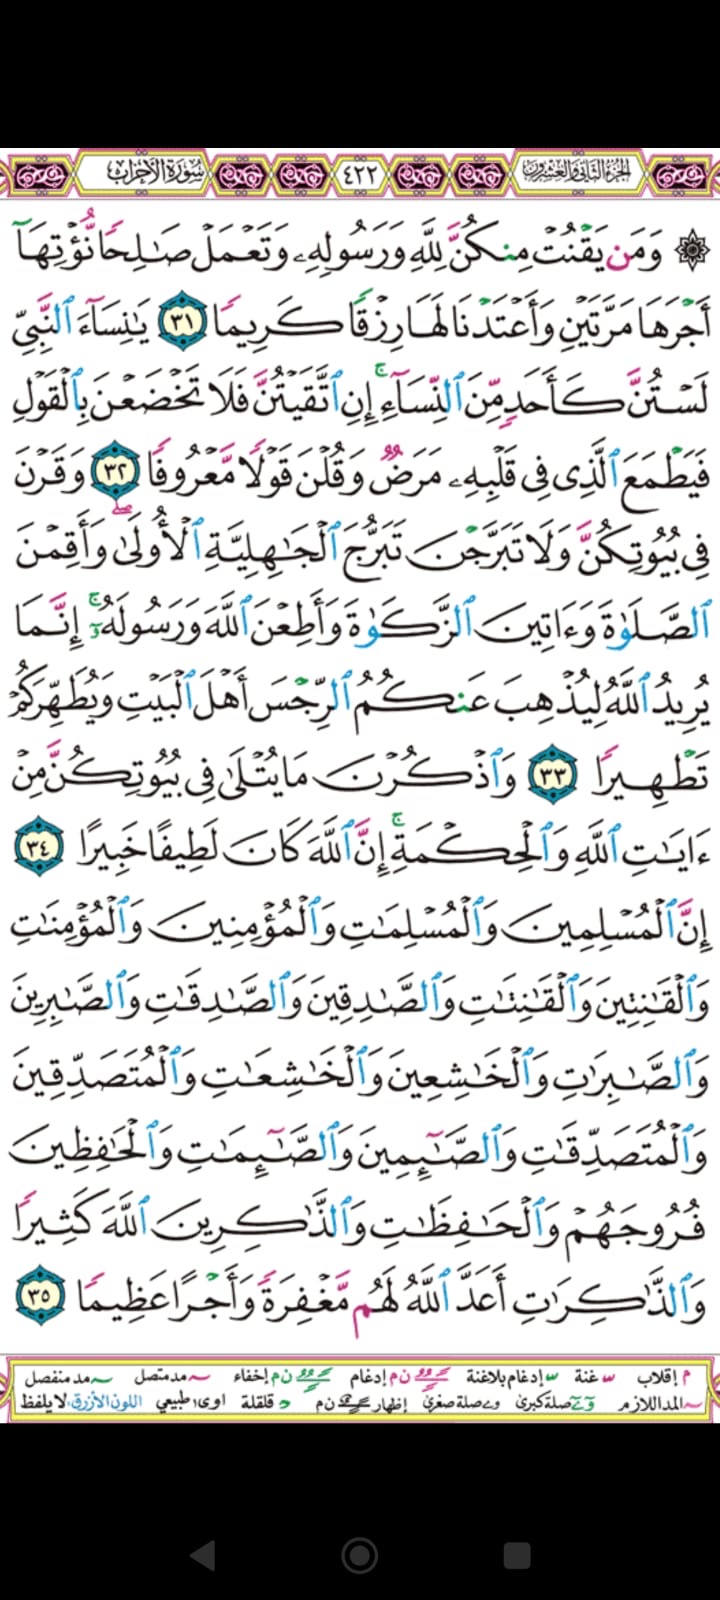 سُورَةُ الأَحْزَابِ ٤٢٢ الجُزْءُ الثَّانِي وَالعِشْرُونَ
۞ وَمَن يَقْنُتْ مِنكُنَّ لِلَّهِ وَرَسُولِهِۦ وَتَعْمَلْ صَٰلِحًا نُّؤْتِهَآ
أَجْرَهَا مَرَّتَيْنِ وَأَعْتَدْنَا لَهَا رِزْقًا كَرِيمًا ٣١ يَٰنِسَآءَ ٱلنَّبِيِّ
لَسْتُنَّ كَأَحَدٍ مِّنَ ٱلنِّسَآءِ ۚ إِنِ ٱتَّقَيْتُنَّ فَلَا تَخْضَعْنَ بِٱلْقَوْلِ
فَيَطْمَعَ ٱلَّذِى فِى قَلْبِهِۦ مَرَضٌ وَقُلْنَ قَوْلًا مَّعْرُوفًا ٣٢ وَقَرْنَ
فِى بُيُوتِكُنَّ وَلَا تَبَرَّجْنَ تَبَرُّجَ ٱلْجَٰهِلِيَّةِ ٱلْأُولَىٰ ۖ وَأَقِمْنَ
ٱلصَّلَوٰةَ وَءَاتِينَ ٱلزَّكَوٰةَ وَأَطِعْنَ ٱللَّهَ وَرَسُولَهُۥٓ ۚ إِنَّمَا
يُرِيدُ ٱللَّهُ لِيُذْهِبَ عَنكُمُ ٱلرِّجْسَ أَهْلَ ٱلْبَيْتِ وَيُطَهِّرَكُمْ
تَطْهِيرًا ٣٣ وَٱذْكُرْنَ مَا يُتْلَىٰ فِى بُيُوتِكُنَّ مِنْ
ءَايَٰتِ ٱللَّهِ وَٱلْحِكْمَةِ ۚ إِنَّ ٱللَّهَ كَانَ لَطِيفًا خَبِيرًا ٣٤
إِنَّ ٱلْمُسْلِمِينَ وَٱلْمُسْلِمَٰتِ وَٱلْمُؤْمِنِينَ وَٱلْمُؤْمِنَٰتِ
وَٱلْقَٰنِتِينَ وَٱلْقَٰنِتَٰتِ وَٱلصَّٰدِقِينَ وَٱلصَّٰدِقَٰتِ وَٱلصَّٰبِرِينَ
وَٱلصَّٰبِرَٰتِ وَٱلْخَٰشِعِينَ وَٱلْخَٰشِعَٰتِ وَٱلْمُتَصَدِّقِينَ
وَٱلْمُتَصَدِّقَٰتِ وَٱلصَّٰٓئِمِينَ وَٱلصَّٰٓئِمَٰتِ وَٱلْحَٰفِظِينَ
فُرُوجَهُمْ وَٱلْحَٰفِظَٰتِ وَٱلذَّٰكِرِينَ ٱللَّهَ كَثِيرًا
وَٱلذَّٰكِرَٰتِ أَعَدَّ ٱللَّهُ لَهُم مَّغْفِرَةً وَأَجْرًا عَظِيمًا ٣٥
م إقلاب غنة إدغام بلاغنة ن م إدغام ن م إخفاء مد متصل مد منفصل
المد اللازم صلة كبرى صلة صغرى إظهار ن م قلقلة اوى طبيعي اللون الأزرق: لا يلفظ